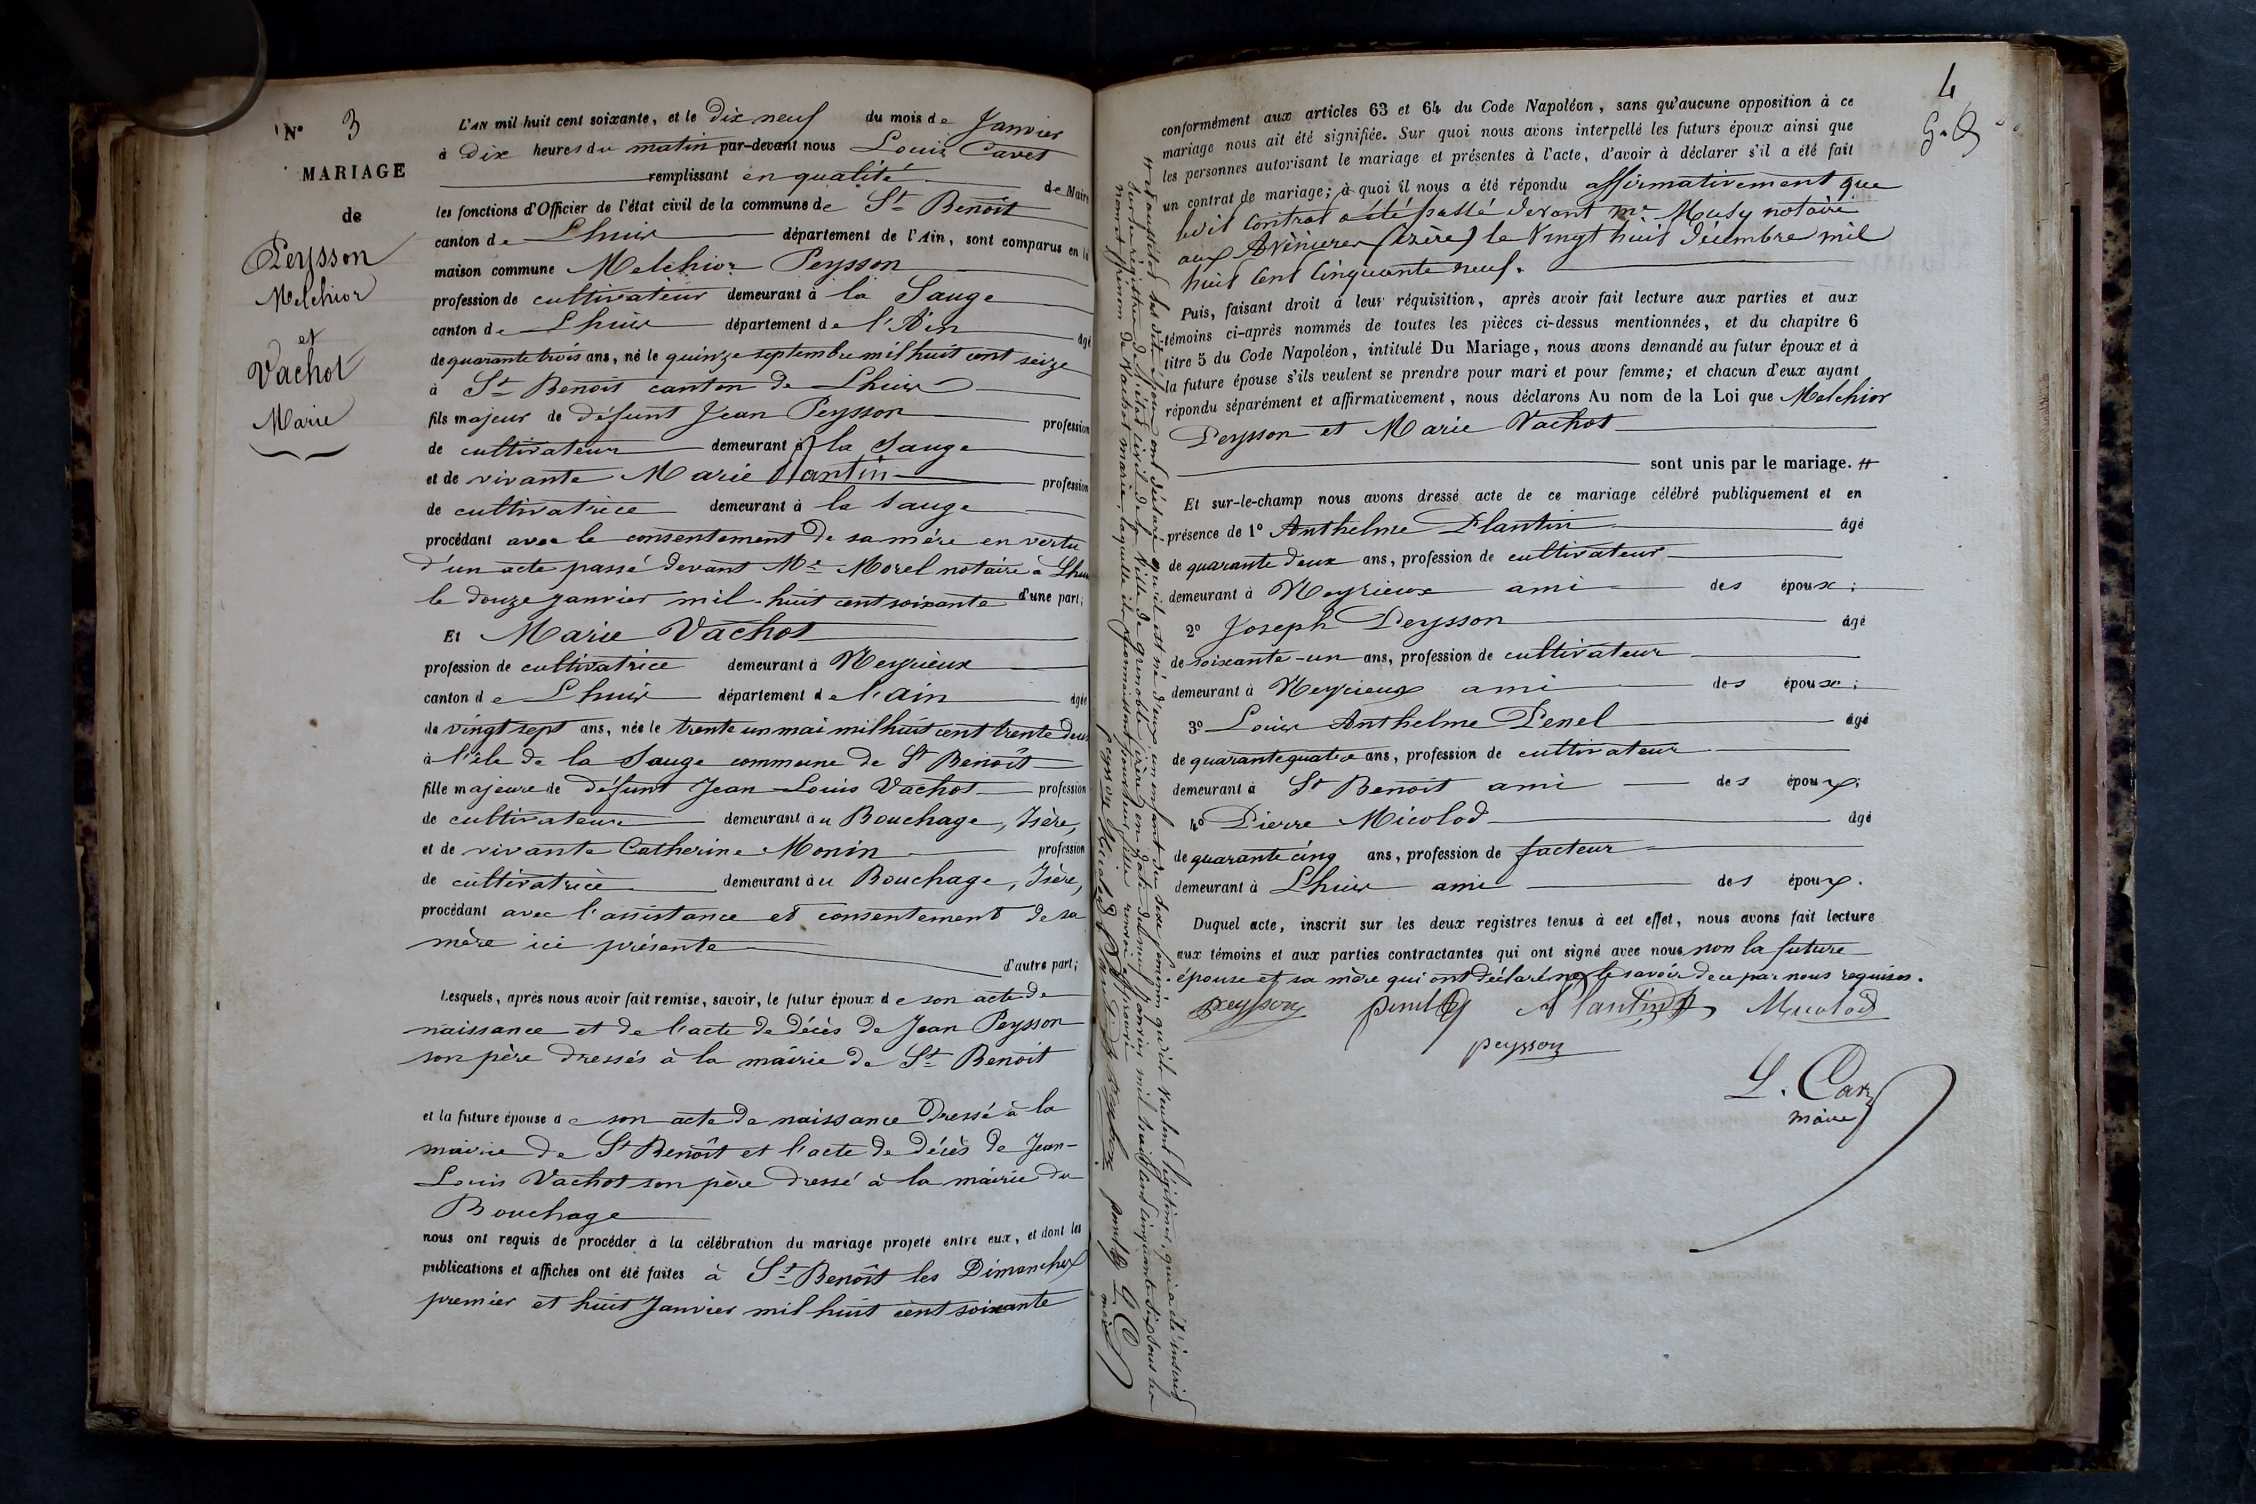 N° 3
MARIAGE
de
Peysson
Melchior
et
Vachot
Marie
L'AN mil huit cent soixante, et le Dix neuf du mois de Janvier
à dix heures du matin par-devant nous Louis Cavet
remplissant en qualité de Maire
les fonctions d'Officier de l'état civil de la commune de St Benoît
canton de Lhuis département de l'Ain, sont comparus en la
maison commune Melchior Peysson
profession de cultivateur demeurant à la Sauge
canton de Lhuis département de l'Ain âgé
de quarante trois ans, né le quinze septembre mil huit cent seize
à St Benoit canton de Lhuis
fils majeur de défunt Jean Peysson profession
de cultivateur demeurant à la Sauge
et de vivante Marie Plantin profession
de cultivatrice demeurant à la Sauge
procédant avec le consentement de sa mère en vertu
d'un acte passé devant Me Morel notaire à Lhuis
le douze janvier mil-huit cent soixante d'une part;
Et Marie Vachot
profession de cultivatrice demeurant à Meyrieux
canton de Lhuis département de l'ain âgée
de vingt sept ans, née le trente un mai mil huit cent trente deux
à l'île de la Sauge commune de St Benoît
fille majeure de défunt Jean-Louis Vachot profession
de cultivateur demeurant au Bouchage, Isère,
et de vivante Catherine Monin profession
de cultivatrice demeurant au Bouchage, Isère,
procédant avec l'assistance et consentement de sa
mère ici présente
d'autre part;
Lesquels, après nous avoir fait remise, savoir, le futur époux de son acte de
naissance et de l'acte de décès de Jean Peysson
son père dressés à la mairie de St Benoit
et la future épouse de son acte de naissance dressé à la
mairie de St Benoît et l'acte de décès de Jean-
Louis Vachot son père dressé à la mairie du
Bouchage
nous ont requis de procéder à la célébration du mariage projeté entre eux, et dont les
publications et affiches ont été faites à St Benoît les Dimanches
premier et huit Janvier mil huit cent soixante
4
conformément aux articles 63 et 64 du Code Napoléon, sans qu'aucune opposition à ce
mariage nous ait été signifiée. Sur quoi nous avons interpellé les futurs époux ainsi que
les personnes autorisant le mariage et présentes à l'acte, d'avoir à déclarer s'il a été fait
un contrat de mariage; à quoi il nous a été répondu affirmativement que
ledit Contrat a été passé devant me Musy notaire
aux Avenieres (isère) le Vingt huit Décembre mil
huit Cent Cinquante neuf.
Puis, faisant droit à leur réquisition, après avoir fait lecture aux parties et aux
témoins ci-après nommés de toutes les pièces ci-dessus mentionnées, et du chapitre 6
titre 5 du Code Napoléon, intitulé Du Mariage, nous avons demandé au futur époux et à
la future épouse s'ils veulent se prendre pour mari et pour femme; et chacun d'eux ayant
répondu séparément et affirmativement, nous déclarons Au nom de la Loi que Melchior
Peysson et Marie Vachot
sont unis par le mariage. #
Et sur-le-champ nous avons dressé acte de ce mariage célébré publiquement et en
présence de 1° Anthelme Plantin âgé
de quarante deux ans, profession de cultivateur
demeurant à Meyrieux ami des époux;
2° Joseph Peysson âgé
de soixante-un ans, profession de cultivateur
demeurant à Meyrieux ami des époux;
3° Louis Anthelme Penel âgé
de quarante quatre ans, profession de cultivateur
demeurant à St Benoit ami des époux;
4° Pierre Micolod âgé
de quarante cinq ans, profession de facteur
demeurant à Lhuis ami des époux.
Duquel acte, inscrit sur les deux registres tenus à cet effet, nous avons fait lecture
aux témoins et aux parties contractantes qui ont signé avec nous non la future
épouse et sa mère qui ont déclaré ne le savoir de ce par nous requises.
peysson Plantin Micolod
peysson
L. Cavet
maire
# et aussitôt les dits époux ont déclaré qu'il est né d'eux un enfant du sexe féminin qu'ils veulent légitimer, qui a été inscrit
sur les registres de l'état civil de la Ville de grenoble (isère) en date du neuf janvier mil huit Cent Cinquante six sous les
nom et prénom de Vachot marie, laquelle ils reconnaissent pour leur fille renvoi approuvé
peysson Micolod Plantin peysson L C maire